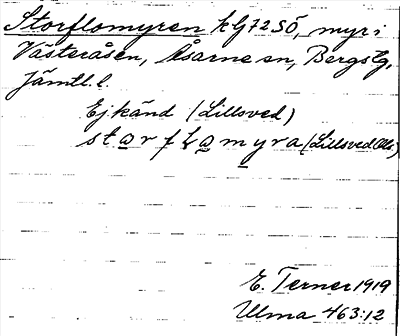 Storflomyren kG72SÖ, myr i
Västeråsen, Åsarne sn, Bergs tg,
Jämtl. l.
Ej känd (Lillsved)
starfLamyra (Lillsved Olle)
E. Terner 1919
Ulma 463:12